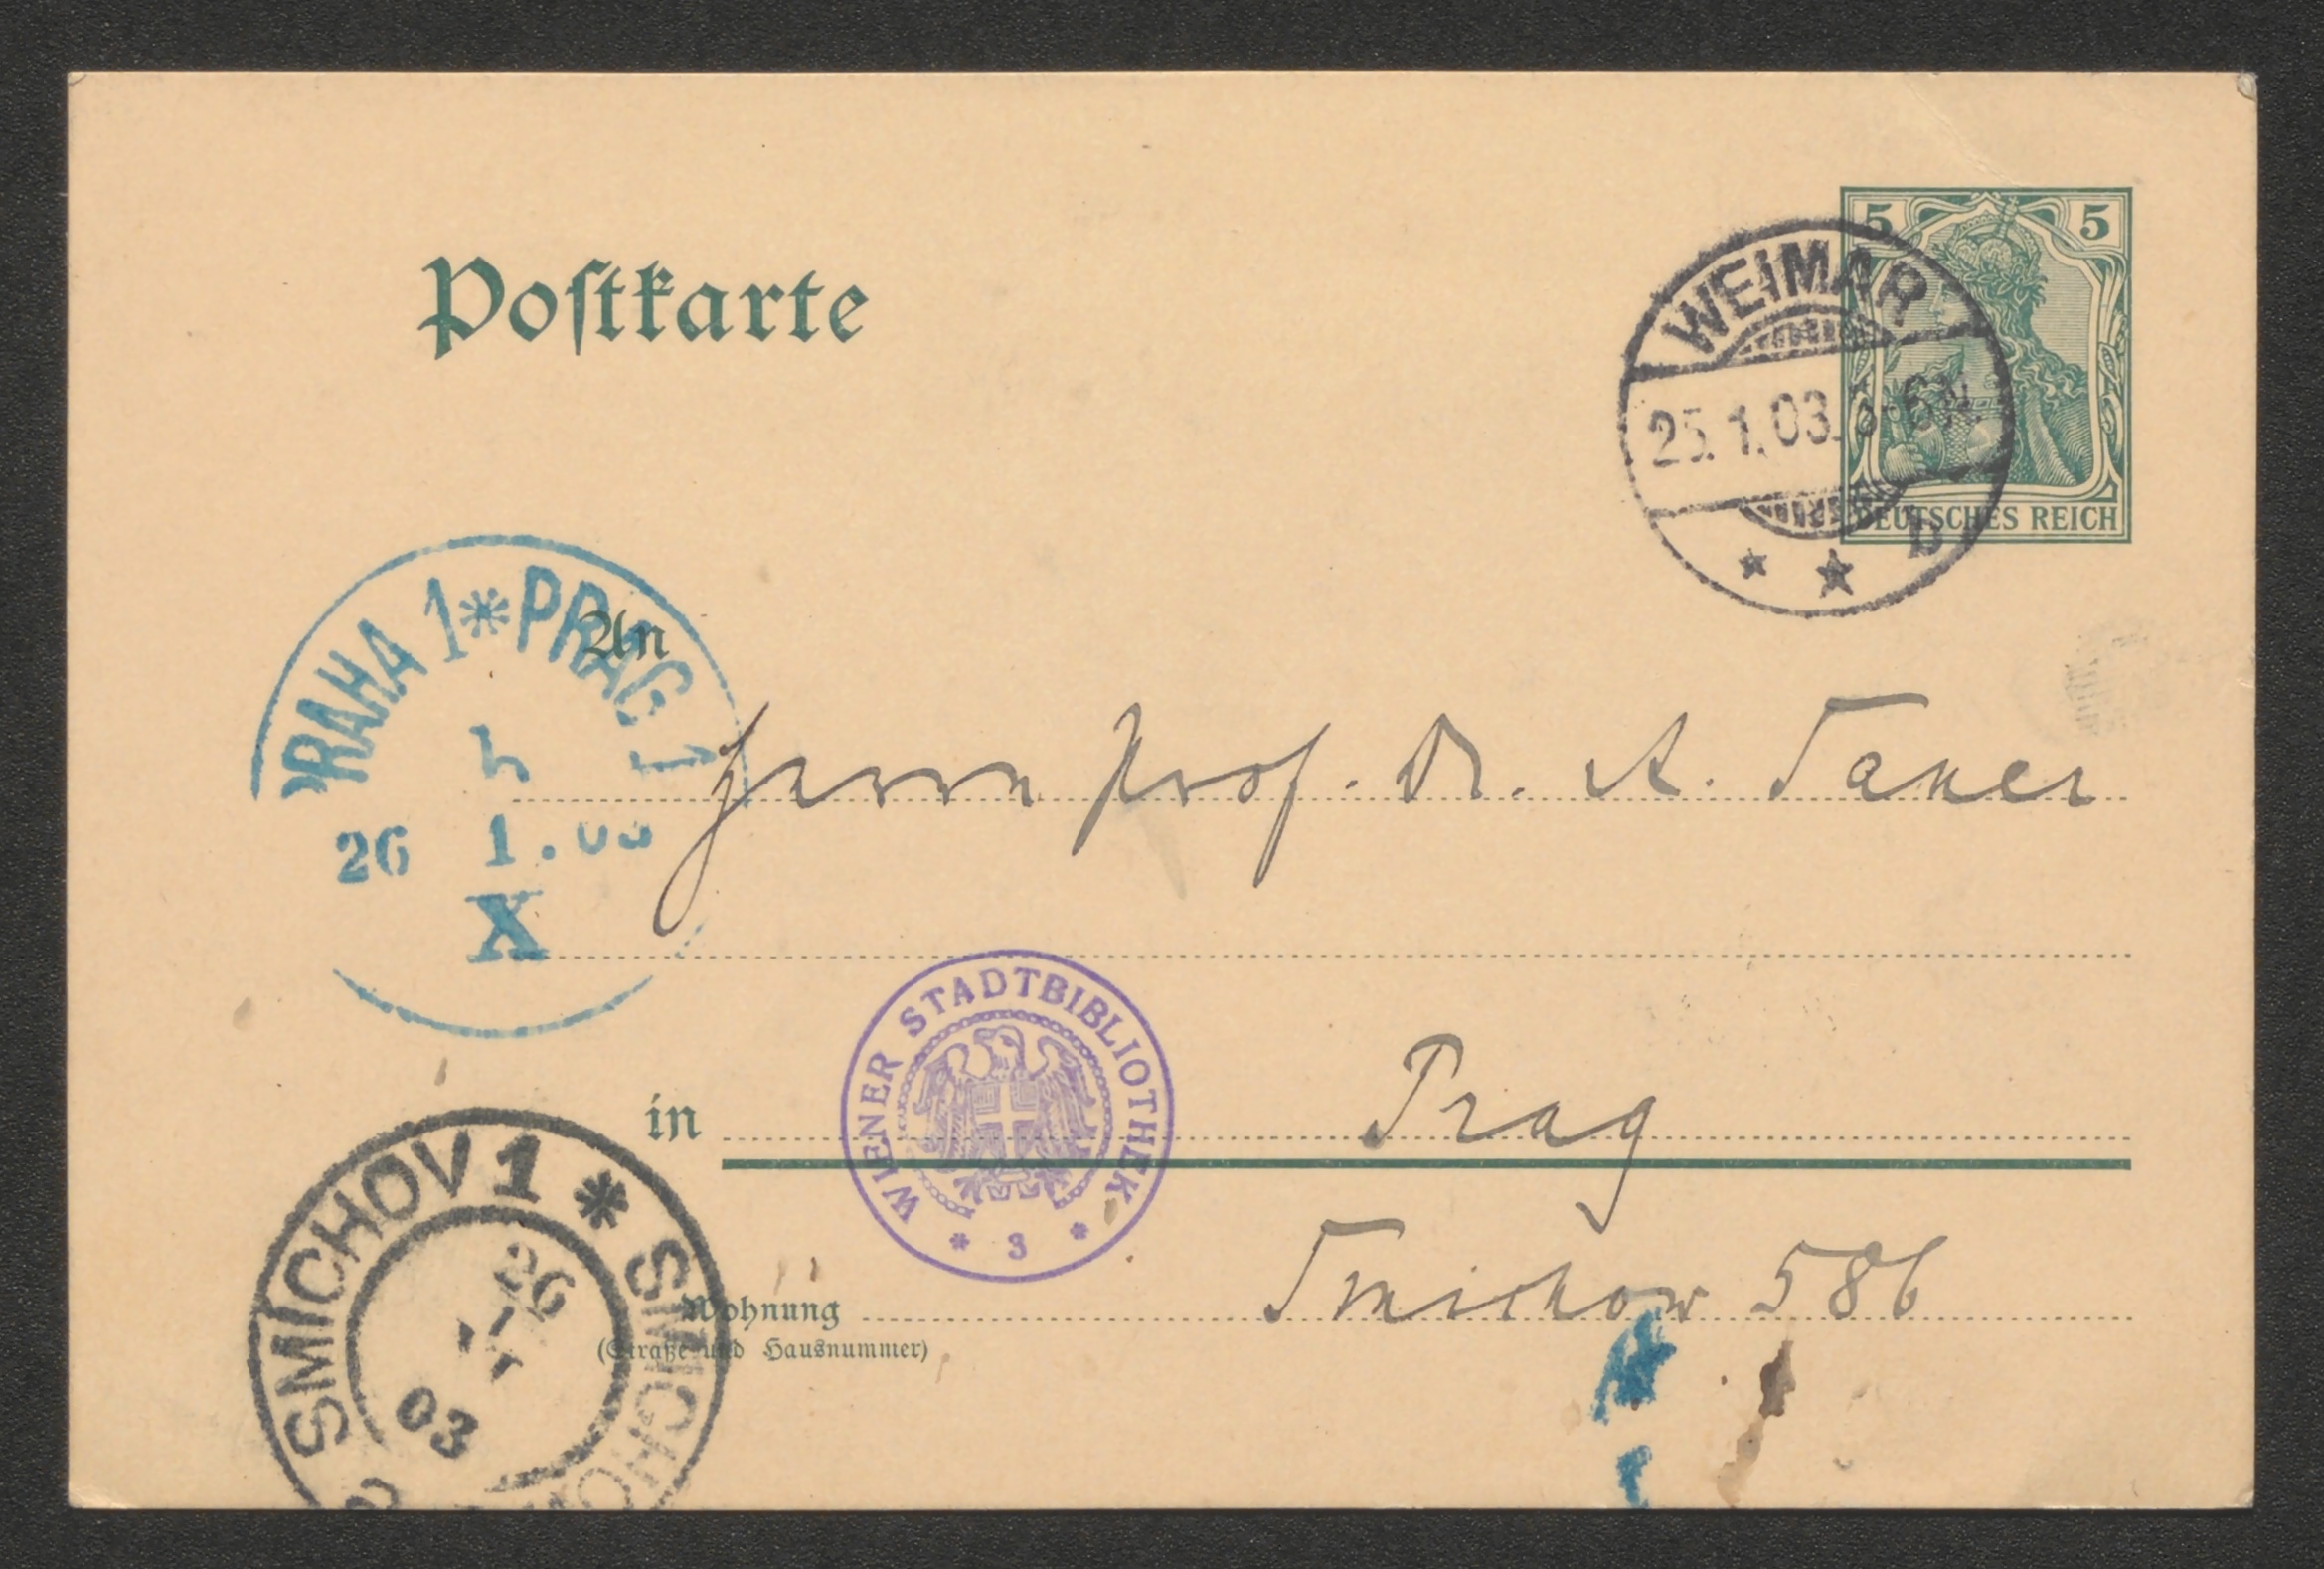 Postkarte
5 5
DEUTSCHES REICH
WEIMAR
25.1.03. 6N.
b
PRAHA 1 * PRAG 1
26 1.03
X
An
Herrn Prof. Dr. A. Sauer
in Prag
WIENER STADTBIBLIOTHEK
* 3 *
Wohnung Smichow 586
(Straße und Hausnummer)
SMICHOV 1 * SMICHO
26
03